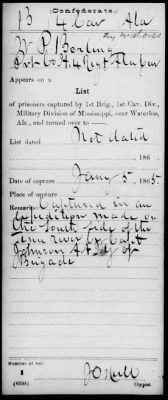 (Confederate.)
B 4 Cav Ala
W. P. Bonting
Pvt Co. A 4 Regt Ala Cav
Appears on a
List
of prisoners captured by 1st Brig., 1st Cav. Div.,
Military Division of Mississippi, near Waterloo,
Ala., and turned over to —
List dated Not dated
, 186 .
Date of capture Jany 5, 1865.
Place of capture
Remarks: Captured in an
expedition made on
the South side of the
Tenn river by Capt
Johnson A. A. G. of
Brigade
Number of roll:
1
(639b) Copyist.